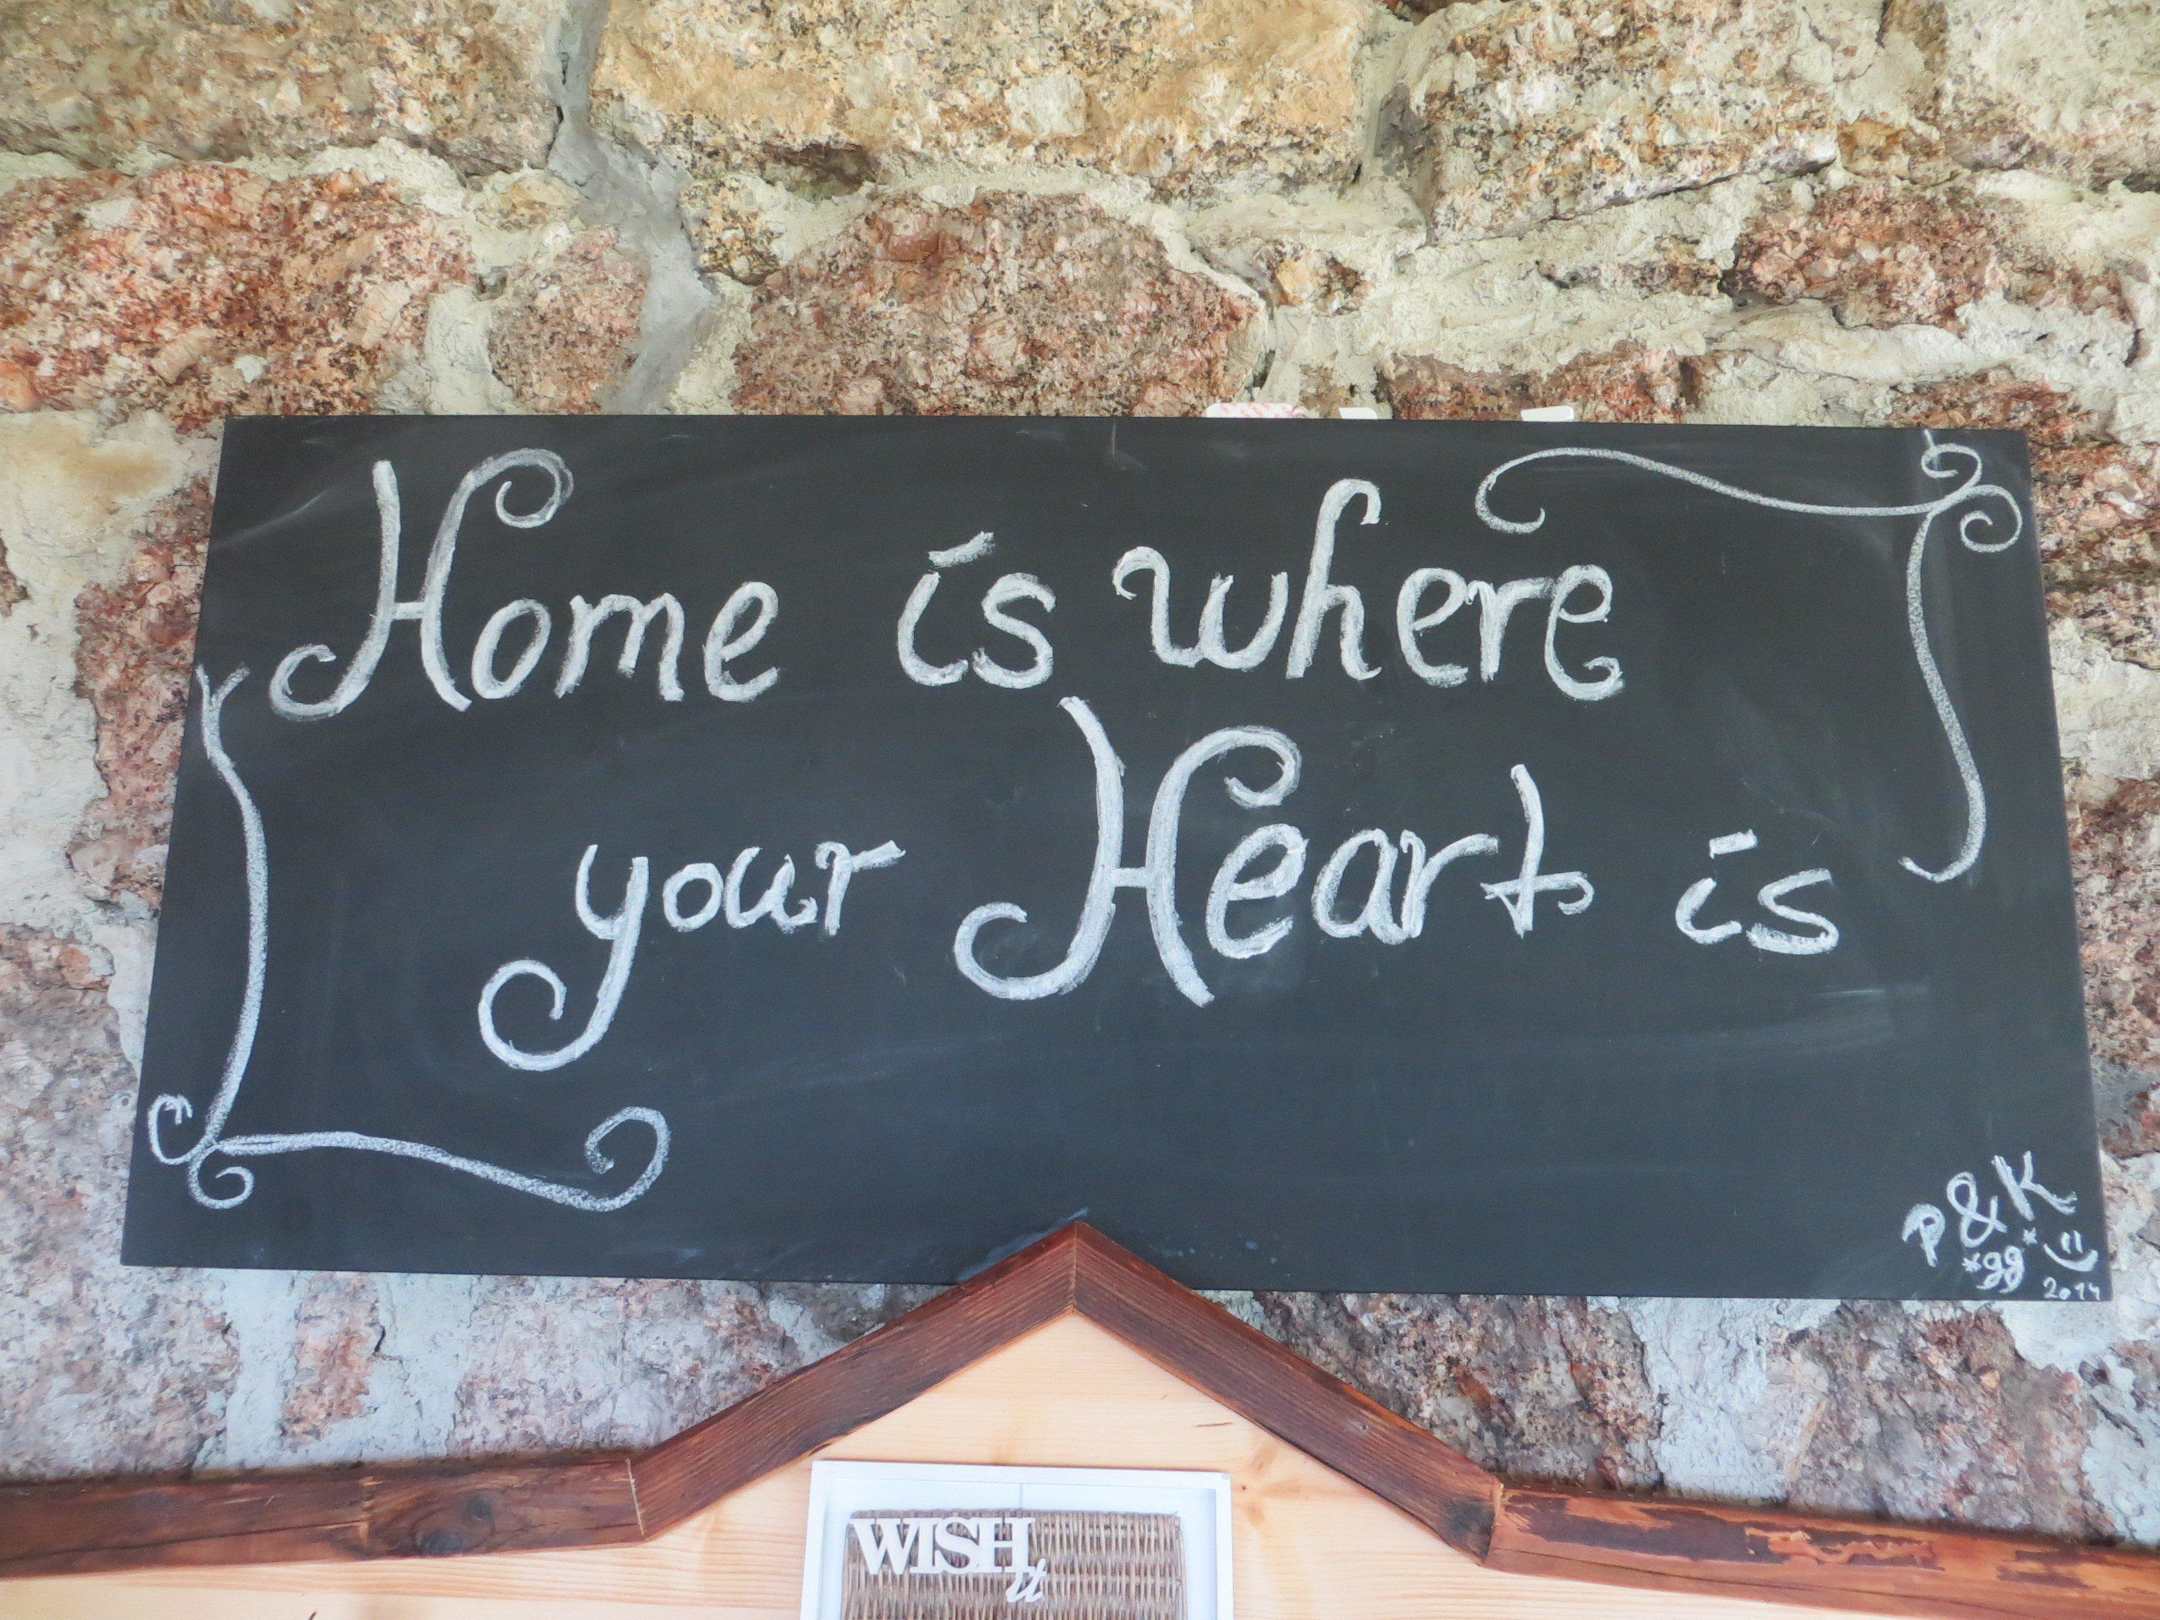 Home is where
your Heart is
P & K
*gg*
2014
WISH
it